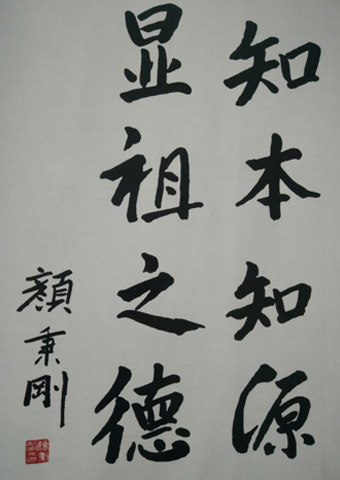 知本知源
显祖之德
顏秉剛